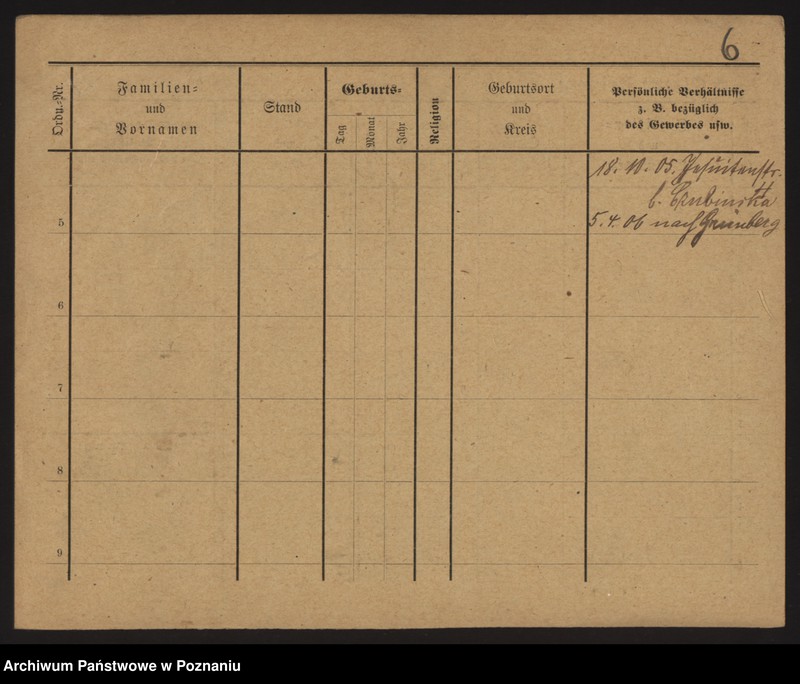 6
Ordn.-Nr.
Familien-
und
Vornamen
Stand
Geburts-
Tag
Monat
Jahr
Religion
Geburtsort
und
Kreis
Persönliche Verhältnisse
z. B. bezüglich
des Gewerbes usw.
18. 10. 05. Jesuitenstr.
b. Czubinska
5
5. 4. 06 nach Grünberg
6
7
8
9
Archiwum Państwowe w Poznaniu